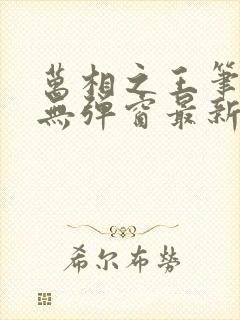 萬相之王筆
無彈窗最新
希尔布勞